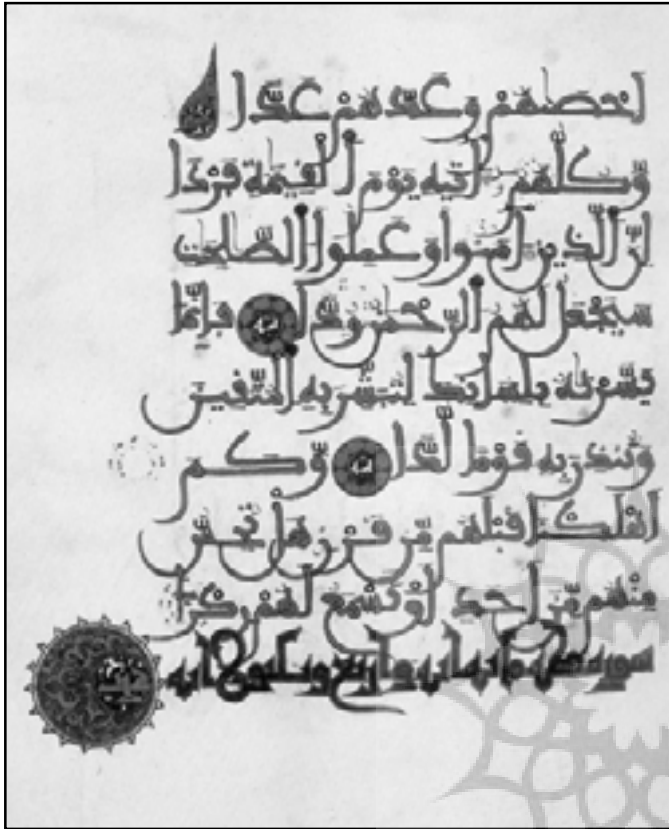 احصهم وَعَدَّهُمْ عَدًّا
وَكُلُّهُمْ اتيه يَوْمَ الْقِيَمَةِ فَرْدًا
اِنَّ الَّذِينَ امَنُوا وَعَمِلُوا الصَّلِحَتِ
سَيَجْعَلُ لَهُمُ الرَّحْمَنُ وُدًّا فَاِنَّمَا
يَسَّرْنَهُ بِلِسَانِكَ لِتُبَشِّرَ بِهِ الْمُتَّقِينَ
وَتُنْذِرَ بِهِ قَوْمًا لُدًّا وَكَمْ
اَهْلَكْنَا قَبْلَهُمْ مِّنْ قَرْنٍ هَلْ تُحِسُّ
مِنْهُمْ مِّنْ اَحَدٍ اَوْ تَسْمَعُ لَهُمْ رِكْزًا
سورة طه مايه ايه واربع وثلثون ايه